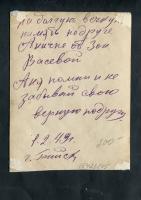 на долгую вечную
память подруге
Аничке от Зои
Васевой
Аня помни и не
забывай свою
верную подругу
1.2.49г.
г. Бийск
200-